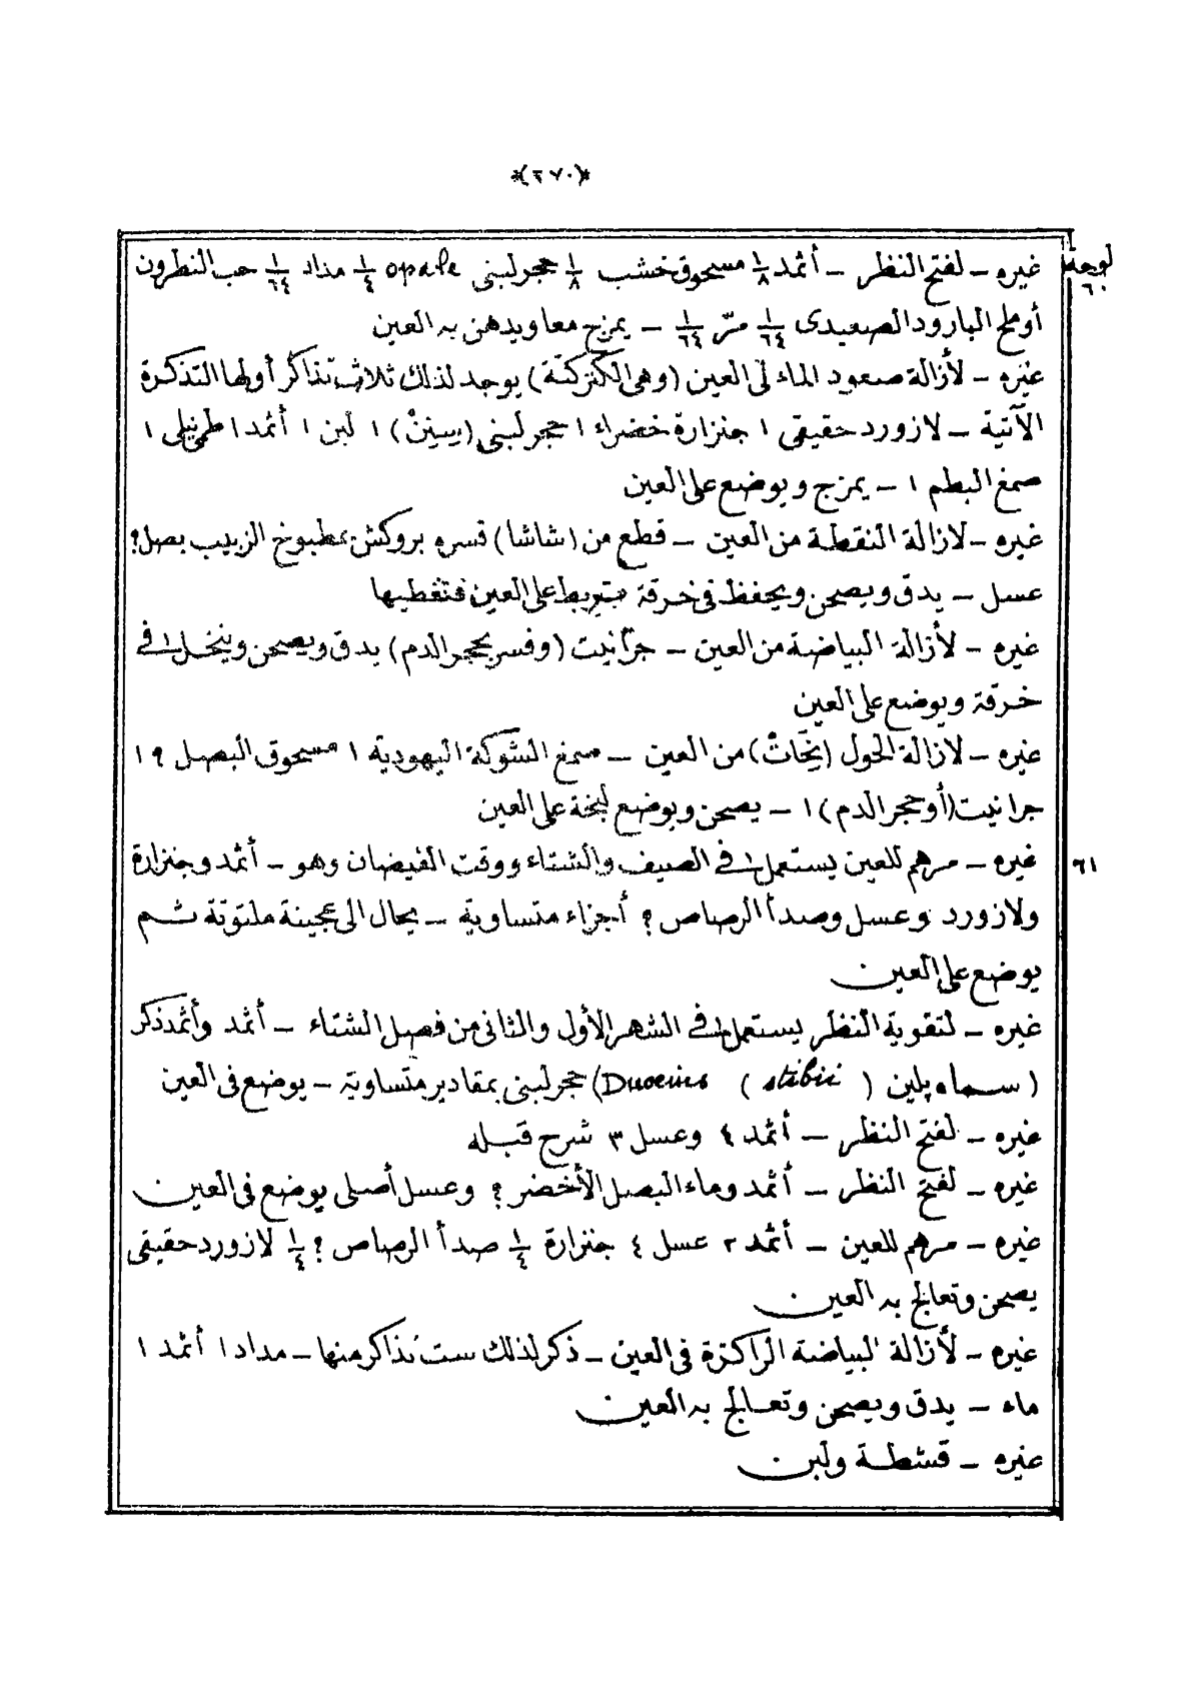 *(٢٧٠)*
لوحة ٦٠
غيره — لفتح النظر — أثمد ١/٨ مسحوق خشب ١/٨ حجر لبنى opale ١/٤ مداد ١/٦٤ حب النطرون
أو ملح البارود الصعيدى ١/٦٤ مرّ ١/٦٤ — يمزج معا ويدهن به العين
غيره — لأزالة صعود الماء فى العين (وهى الكتركتة) يوجد لذلك ثلاث تذاكر أولها التذكرة
الآتية — لازورد حقيقى ١ جنزارة خضراء ١ حجر لبنى ١ لبن ١ أثمد ١ طمى نيلى ١
صمغ البطم ١ — يمزج ويوضع على العين
غيره — لازالة النقطة من العين — قطع من (شاشا) فسره بروكش بمطبوخ الزبيب بصل؟
عسل — يدق ويصحن ويحفظ فى خرقة تربط على العين فتغطيها
غيره — لأزالة البياضة من العين — جرانيت (وفسر بحجر الدم) يدق ويصحن وينخل فى
خرقة ويوضع على العين
غيره — لأزالة الحول من العين — صمغ الشوكة اليهودية ١ مسحوق البصل ؟ ١
جرانيت (أو حجر الدم) ١ — يصحن ويوضع لبخة على العين
٦١
غيره — مرهم للعين يستعمل فى الصيف والشتاء ووقت الفيضان وهو — أثمد وجنزارة
ولازورد وعسل وصدأ الرصاص؟ أجزاء متساوية — يحال الى عجينة ملتوتة ثم
يوضع على العين
غيره — لتقوية النظر يستعمل فى الشهر الأول والثانى من فصل الشتاء — أثمد وأثمد ذكر
(سماه پلين (stibii) حجر لبنى بمقادير متساوية — يوضع فى العين
غيره — لفتح النظر — أثمد ٤ وعسل ٣ شرح قبله
غيره — لفتح النظر — أثمد وماء البصل الأخضر؟ وعسل أصلى يوضع فى العين
غيره — مرهم للعين — أثمد ٢ عسل ٤ جنزارة ١/٤ صدأ الرصاص؟ ١/٤ لازورد حقيقى
يصحن وتعالج به العين
غيره — لأزالة البياضة الراكزة فى العين — ذكر لذلك ست تذاكر منها — مداد ١ أثمد ١
ماء — يدق ويصحن وتعالج به العين
غيره — قشطة ولبن